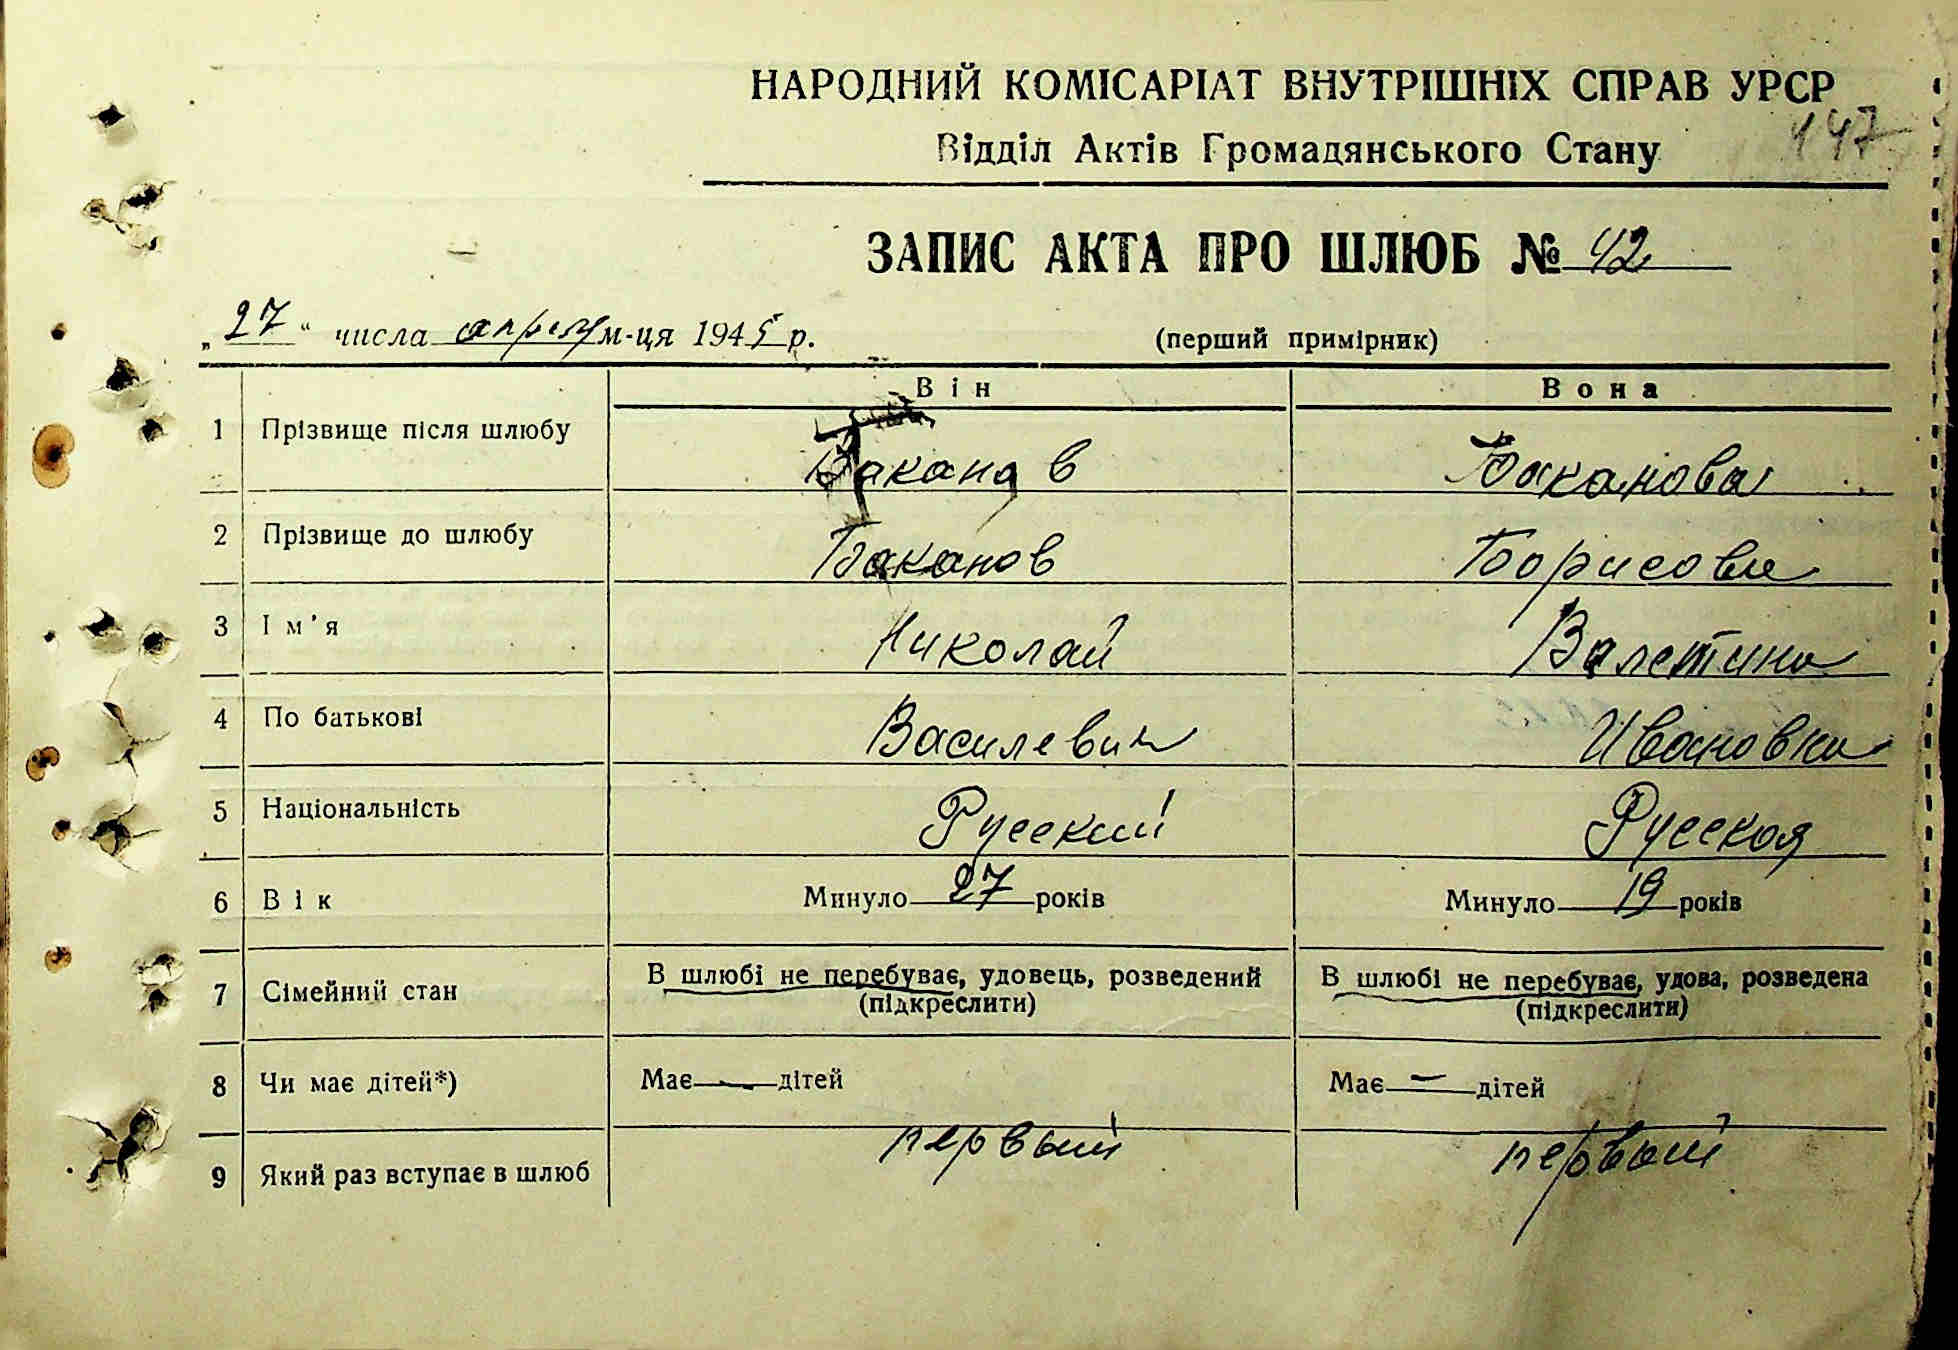 НАРОДНИЙ КОМІСАРІАТ ВНУТРІШНІХ СПРАВ УРСР
Відділ Актів Громадянського Стану
147
ЗАПИС АКТА ПРО ШЛЮБ № 42
„27“ числа апреля м-ця 1945 р. (перший примірник)
Він Вона
1 Прізвище після шлюбу Баканов Баканова
2 Прізвище до шлюбу Баканов Борисова
3 Ім'я Николай Валетина
4 По батькові Василевич Ивановна
5 Національність Русский Русская
6 Вік Минуло 27 років Минуло 19 років
7 Сімейний стан В шлюбі не перебуває, удовець, розведений В шлюбі не перебуває, удова, розведена
(підкреслити) (підкреслити)
8 Чи має дітей*) Має — дітей Має — дітей
9 Який раз вступає в шлюб первый первый